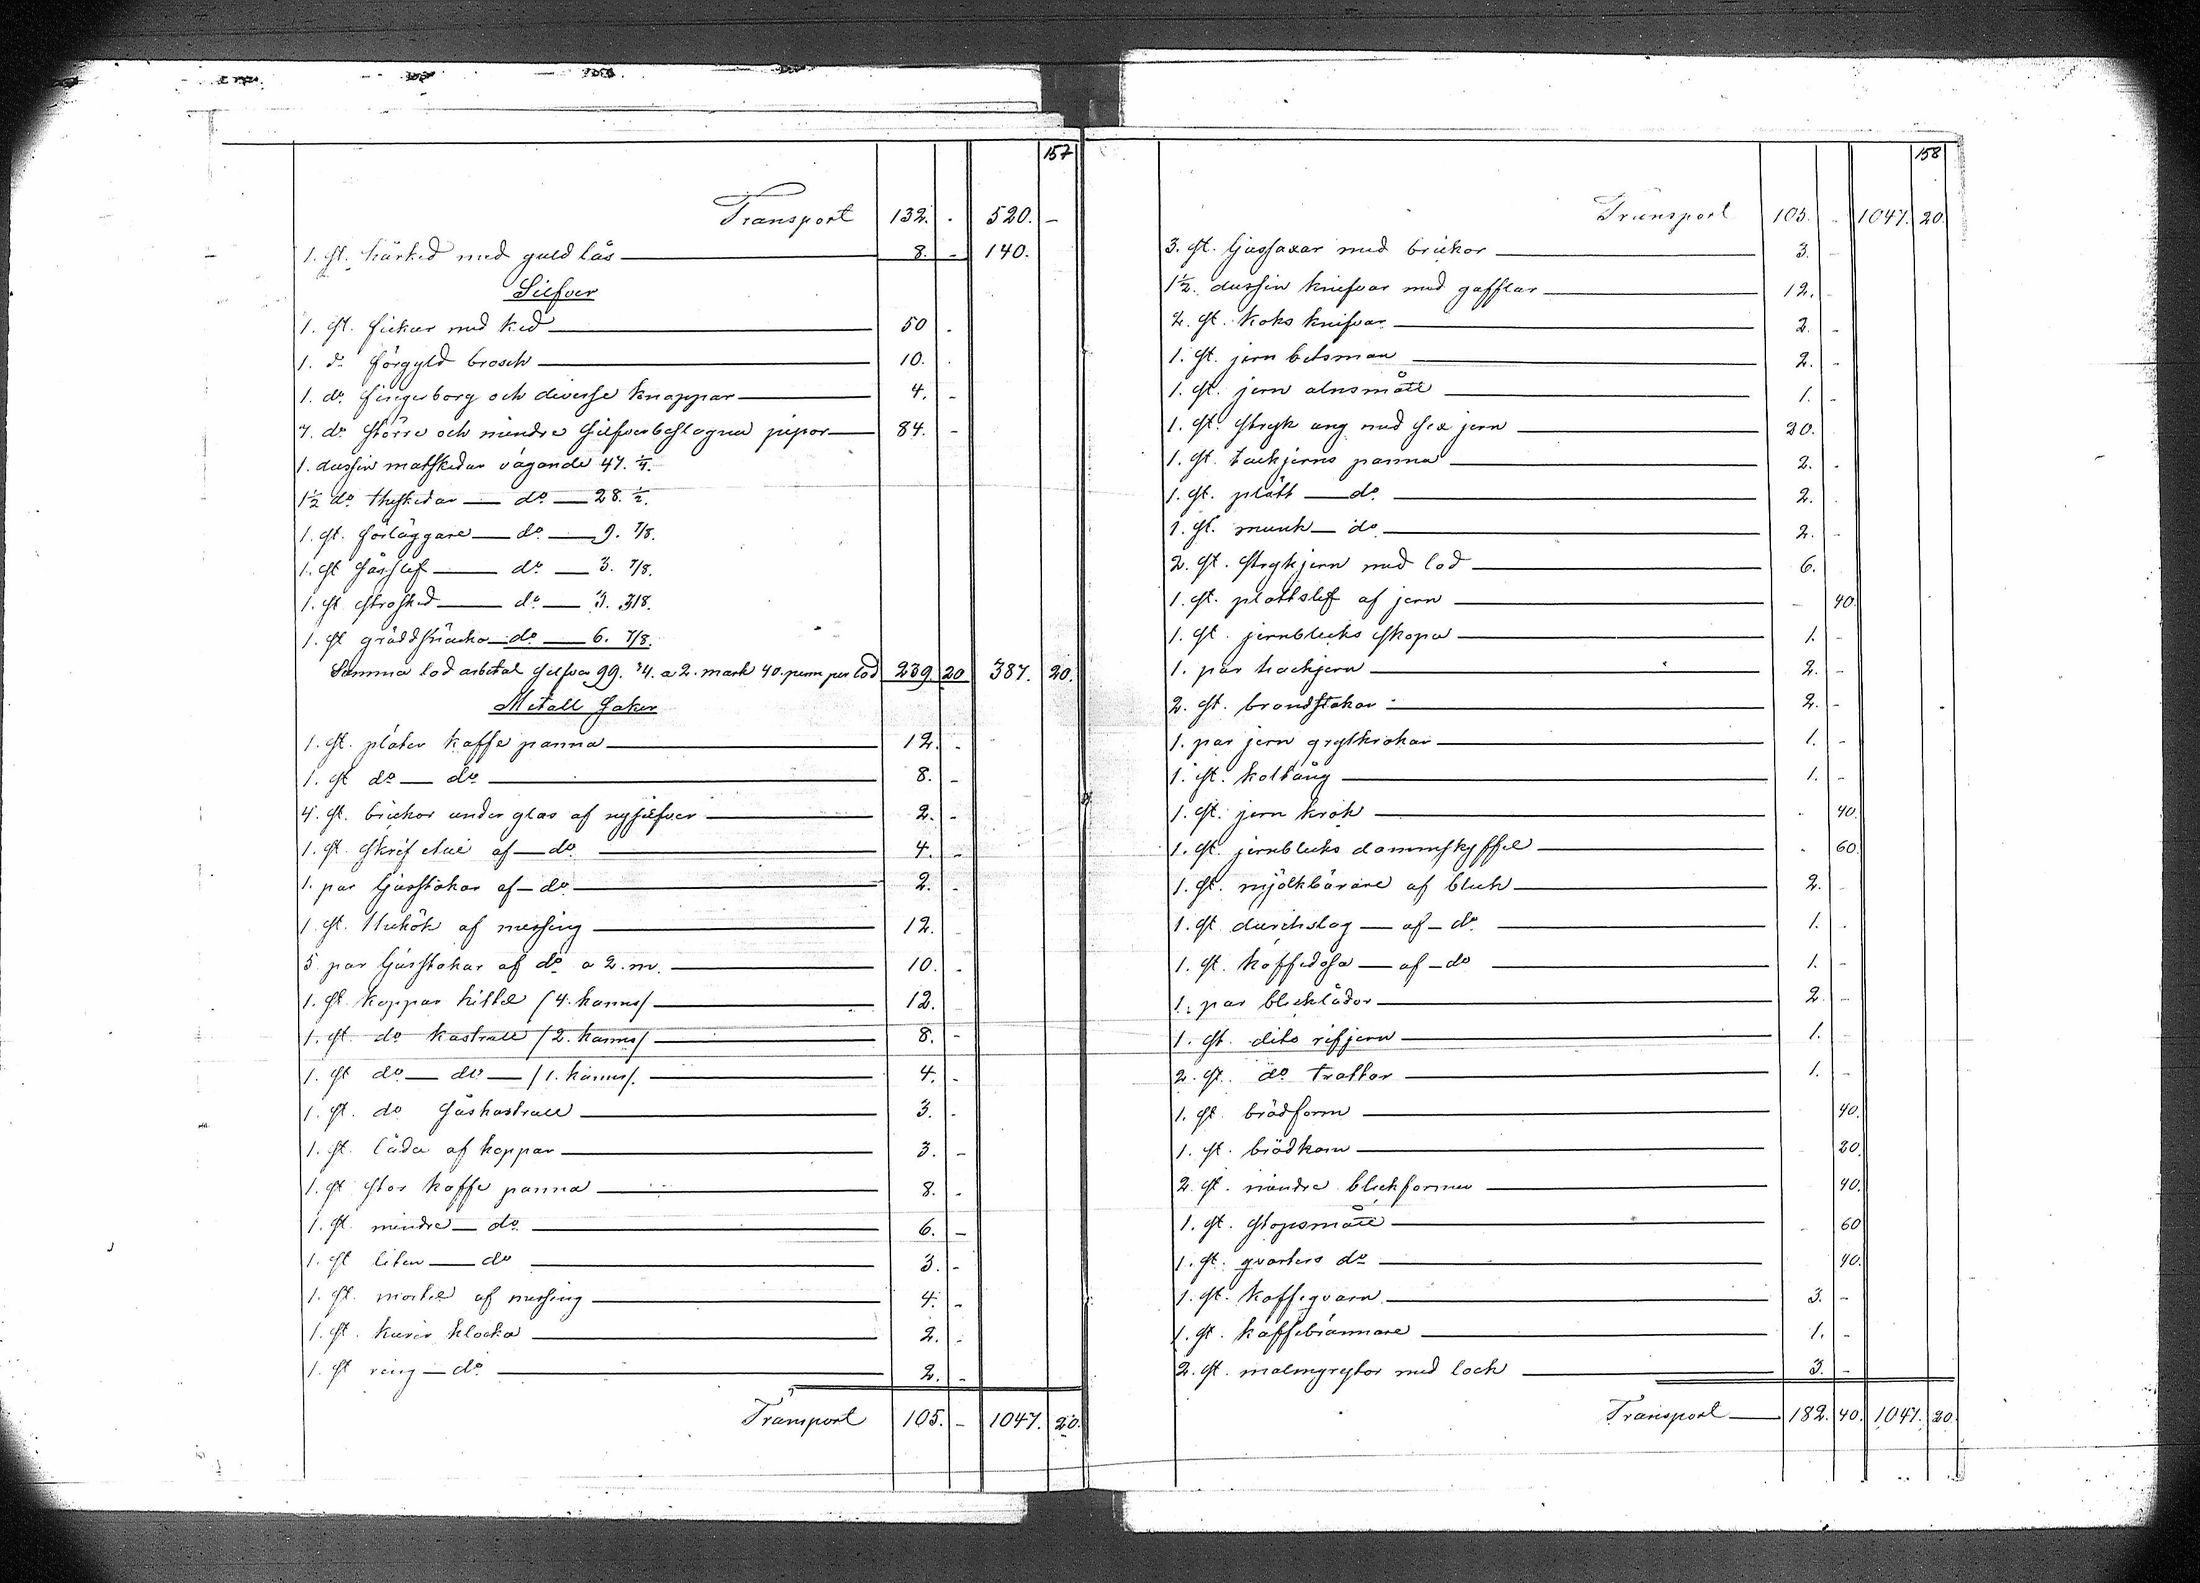 157
Transport 132. - 520. -
1. st. hårked med guld lås 8. - 140.
Silfver
1. st. fickur med ked 50 -
1. do förgyld brosch 10. -
1. do fingerborg och diverse knappar 4. -
7. do större och mindre silfverbeslagna pipor 84. -
1. dussin matskedar vägande 47. 1/4.
1 1/2 do theskedar do 28. 1/2.
1. st. förläggare do 9. 7/8.
1. st såsslef do 3. 7/8.
1. st strösked do 3. 3/8.
1. st gräddsnäcka do 6. 7/8.
Summa lod arbetat silfver 99. 3/4. a 2. mark 40. penni per lod 239 20 387. 20.
Metall saker
1. st. pläter kaffe panna 12. -
1. st do do 8. -
4. st. brickor under glas af nysilfver 2. -
1. st. skrif etui af do 4. -
1. par ljusstakar af do 2. -
1. st. thekök af messing 12. -
5 par ljusstakar af do a 2. m. 10. -
1. st. koppar kittel /4. kannas/ 12. -
1. st. do kastrull /2. kannas/ 8. -
1. st do do /1. kannas/. 4. -
1. st. do såskastrull 3. -
1. st. låda af koppar 3. -
1. st stor kaffe panna 8. -
1. st. mindre do 6. -
1. st liten do 3. -
1. st. mortel af messing 4. -
1. st. klocka 2. -
1. st ring do 2. -
Transport 105. - 1047. 20.
158
Transport 105. - 1047. 20.
3. st. ljussaxar med brickor 3. -
1 1/2. dussin knifvar med gafflar 12. -
2. st. koks knifvar 2. -
1. st. jern betsman 2. -
1. st. jern alnsmått 1. -
1. st. stryk ung med sex jern 20.
1. st. tackjerns panna 2. -
1. st. plätt do 2. -
1. st. munk do 2. -
2. st. strykjern med lod 6.
1. st. plattslef af jern - 40.
1. st. jernblecks skopa 1. -
1. par hackjern 2. -
2. st. brandstakar 2. -
1. par jern grytkrokar 1. -
1. st. koltång 1. -
1. st. jern krok - 40.
1. st. jernblecks dammskyffel - 60.
1. st. mjölkbärare af bleck 2. -
1. st durchslag af do 1. -
1. st. kaffedosa af do 1. -
1. par blecklådor 2. -
1. st. dito rifjern 1. -
2. st. do trattar 1. -
1. st. brödform 40.
1. st. brödkam 20.
2. st. mindre bleckformar 40.
1. st. stopsmått - 60
1. st. qvarters do 40.
1. st. kaffeqvarn 3. -
1. st. kaffebrännare 1. -
2. st. malmgrytor med lock 3. -
Transport 182. 40. 1047. 20.